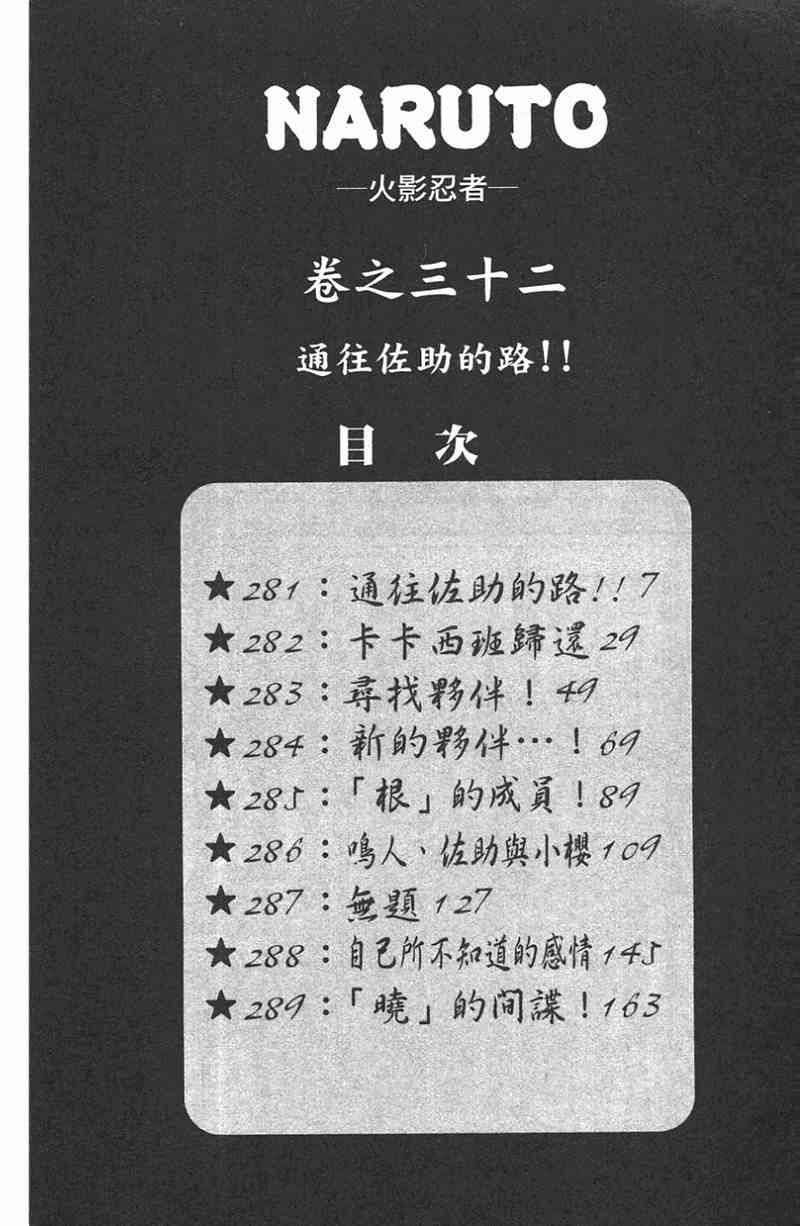 NARUTO
—火影忍者—
卷之三十二
通往佐助的路!!
目 次
★281：通往佐助的路!! 7
★282：卡卡西班歸還 29
★283：尋找夥伴！ 49
★284：新的夥伴…！ 69
★285：「根」的成員！ 89
★286：鳴人、佐助與小櫻 109
★287：無題 127
★288：自己所不知道的感情 145
★289：「曉」的間諜！ 163